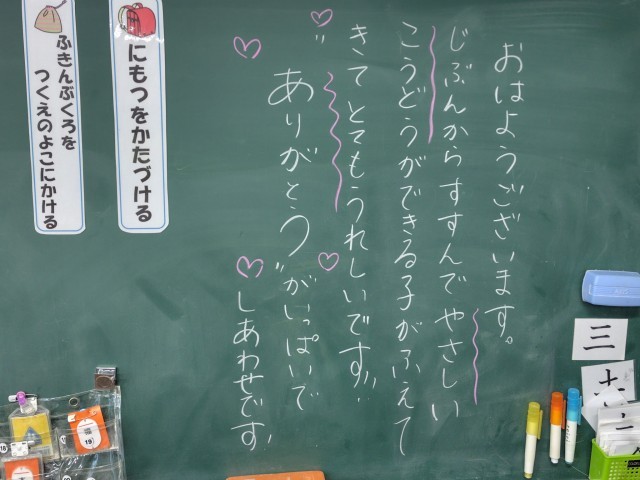 おはようございます。
じぶんからすすんでやさしい
こうどうができる子がふえて
きてとてもうれしいです!!
"ありがとう"がいっぱいで
しあわせです
にもつをかたづける
ふきんぶくろを
つくえのよこにかける
三
19